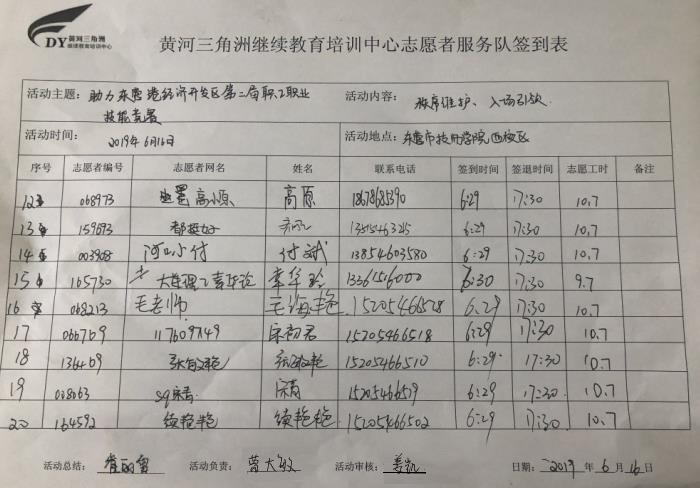 黄河三角洲
继续教育培训中心
DY
黄河三角洲继续教育培训中心志愿者服务队签到表
活动主题: 助力东营港经济开发区第二届职工职业技能竞赛 活动内容: 秩序维护、入场引领
活动时间: 2019年6月16日 活动地点: 东营市技师学院西校区
序号 志愿者编号 志愿者网名 姓名 联系电话 签到时间 签退时间 志愿工时 备注
12 068973 高小原 高原 18678685390 6:29 17:30 10.7
13 159693 都挺好 6:29 17:30 10.7
14 003908 河口小付 付斌 13854603580 6:29 17:30 10.7
15 165730 李华玲 6:30 17:30 9.7
16 068213 毛老师 毛海艳 15205466528 6:29 17:30 10.7
17 066709 宋初君 15205466518 6:29 17:30 10.7
18 136409 张敏艳 15205466510 6:29 17:30 10.7
19 038063 sq宋青 宋青 15205466519 6:29 17:30 10.7
20 164592 绞艳艳 15205466502 6:29 17:30 10.7
活动总结: 活动负责: 曹大敏 活动审核: 姜凯 日期: 2019 年 6 月 16 日